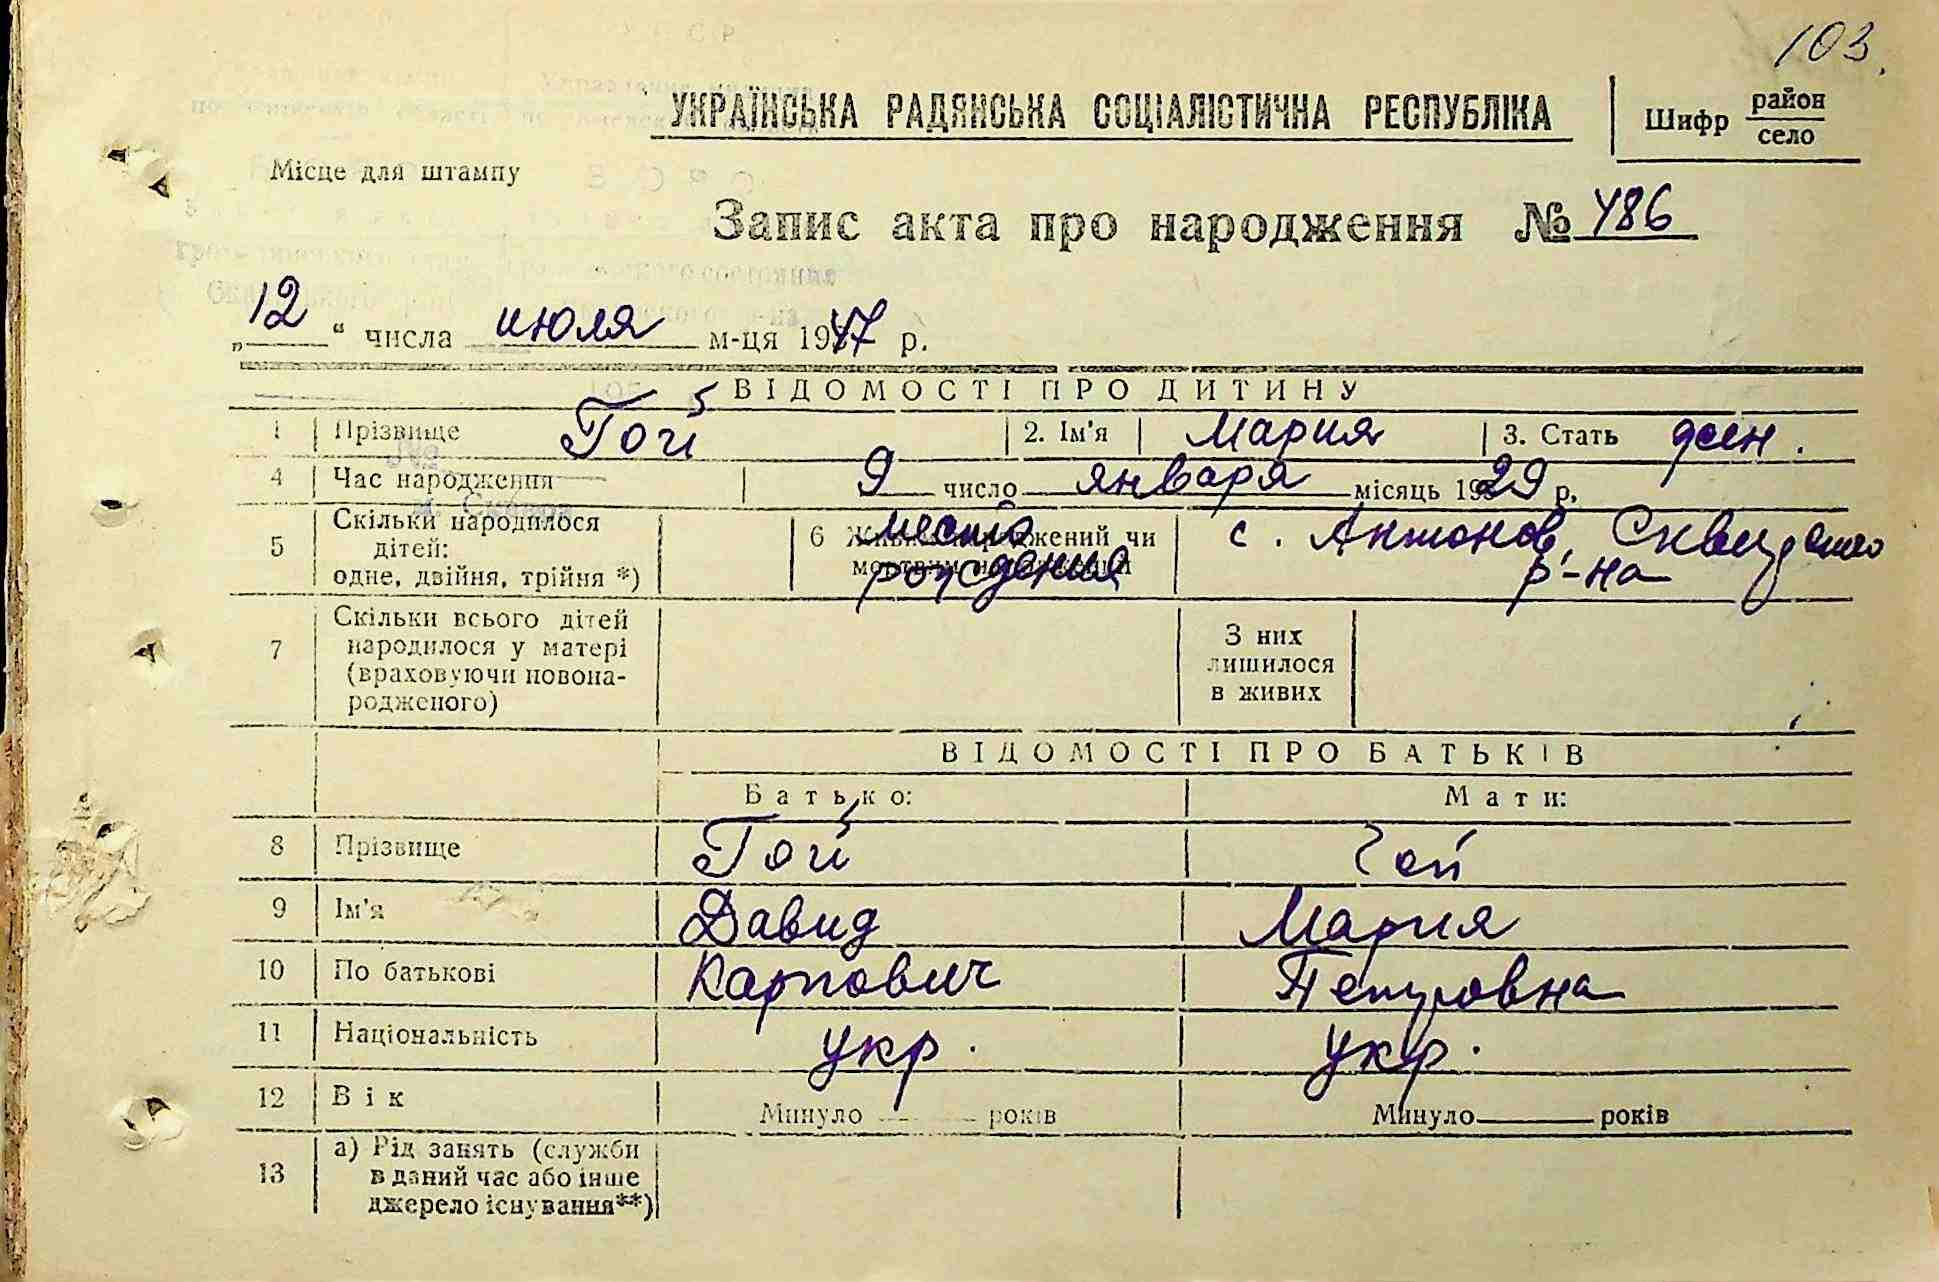 103.
УКРАЇНСЬКА РАДЯНСЬКА СОЦІАЛІСТИЧНА РЕСПУБЛІКА
Шифр район
село
Місце для штампу
Запис акта про народження № 486
„12“ числа июля м-ця 1947 р.
ВІДОМОСТІ ПРО ДИТИНУ
1 Прізвище Гой 2. Ім'я Мария 3. Стать жен.
4 Час народження 9 число января місяць 1929 р.
5 Скільки народилося дітей: одне, двійня, трійня *)
6 Живим народжений чи мертвим народжений
место рождения
с. Антонов, Сквирского р-на
7 Скільки всього дітей народилося у матері (враховуючи новонародженого)
З них лишилося в живих
ВІДОМОСТІ ПРО БАТЬКІВ
Батько: Мати:
8 Прізвище Гой Гой
9 Ім'я Давид Мария
10 По батькові Карпович Петровна
11 Національність укр. укр.
12 Вік Минуло років Минуло років
13 а) Рід занять (служби
в даний час або інше
джерело існування**)